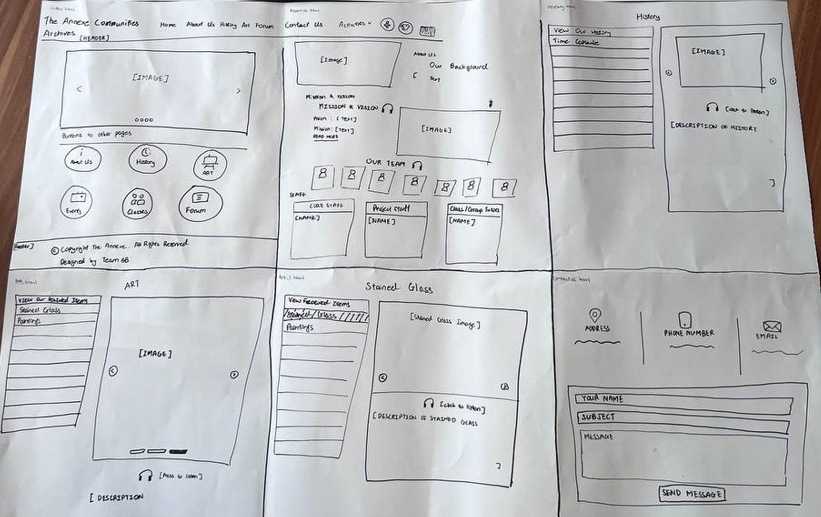 index.html
The Annexe Communities
Archives
[HEADER]
Home About Us History Art Forum Contact Us Activities
[IMAGE]
Buttons to other pages
About Us
History
ART
Events
Classes
Forum
© Copyright The Annexe. All Rights Reserved
Designed by Team 6B
[Image]
About Us
Our Background
[ Text
Mission & Vision
MISSION & VISION
[IMAGE]
Mission: [Text]
READ MORE
OUR TEAM
STAFF
CORE STAFF
[NAME]
Project Staff
[NAME]
Class/Group Tutors
[NAME]
History.html
History
View Our History
Time Capsule
[IMAGE]
[Click to listen]
[DESCRIPTION OF HISTORY
]
ART
View Our Featured Items
Stained Glass
Paintings
[IMAGE]
[Press to listen]
[ DESCRIPTION
Stained Glass
View Featured Items
Stained Glass
Paintings
[Stained Glass Image]
[Click to listen]
[DESCRIPTION OF STAINED GLASS
]
Contactus.html
ADDRESS
PHONE NUMBER
EMAIL
YOUR NAME
SUBJECT
MESSAGE
SEND MESSAGE